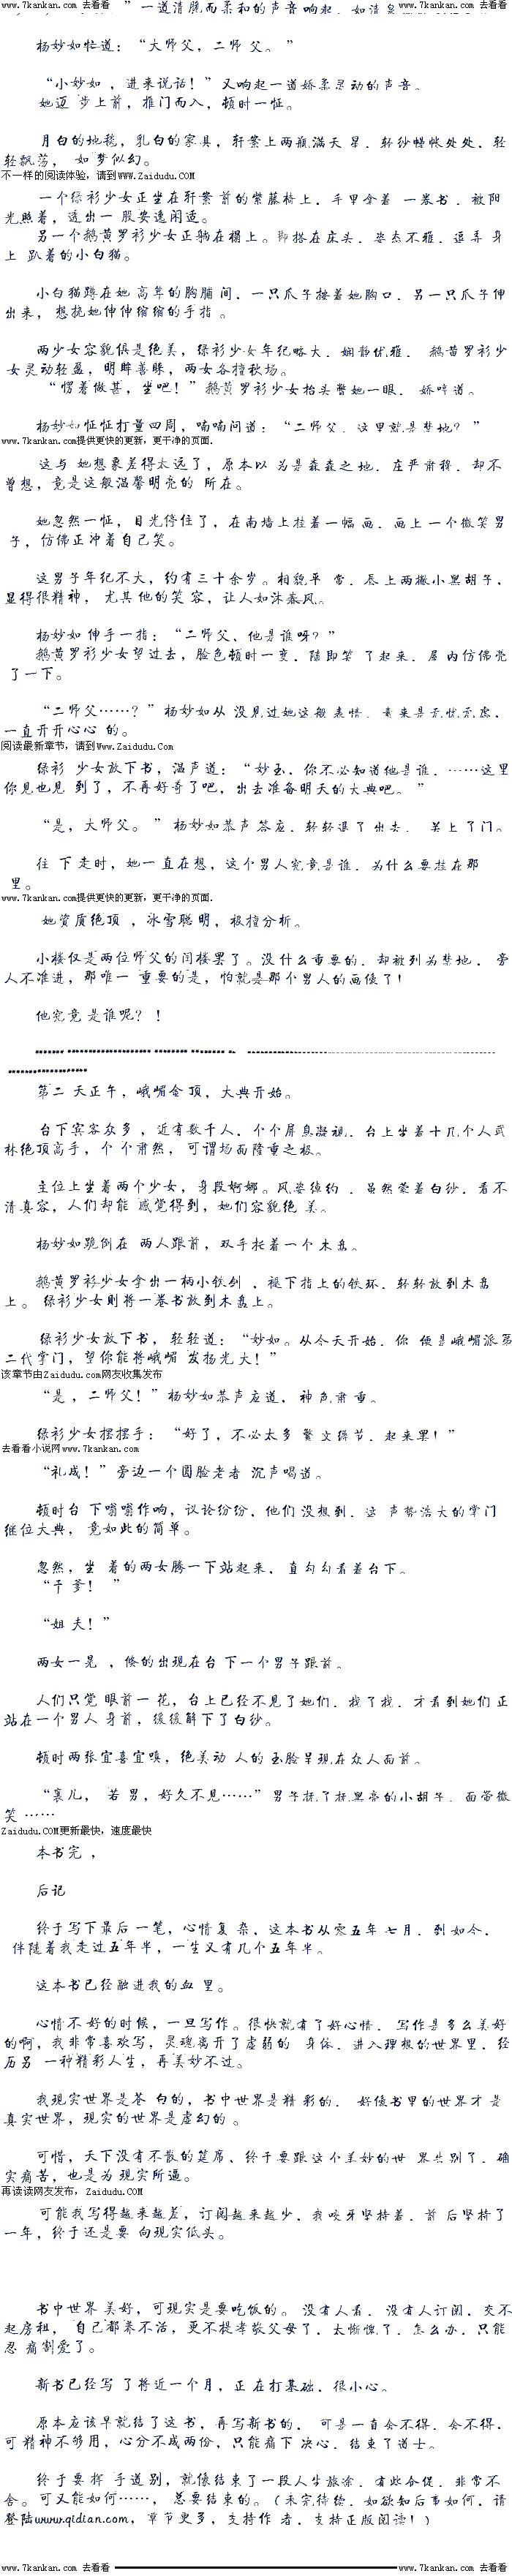 www.7kankan.com 去看看 www.7kankan.com 去看看
”一道清脆而柔和的声音响起，如清泉
杨妙如忙道：“大师父，二师 父。”
“小妙如 ，进来说话！”又响起一道娇柔灵动的声音。
她迈 步上前，推门而入，顿时一怔。
月白的地毯，乳白的家具，轩案上两瓶满天 星，轻纱幔帐处处，轻
轻飘荡， 如 梦似幻。
不一样的阅读体验，请到www.Zaidudu.COM
一个绿衫少女正坐在轩案 前的紫藤椅上，手里拿着 一卷书，被阳
光照着，透出一 股安逸闲适。
另一个鹅黄罗衫少女正躺在榻上。脚搭在床头，姿态不雅，逗弄 身
上 趴着的小白猫。
小白猫蹲在她 高耸的胸脯 间，一只爪子搂着她胸口，另一只爪子伸
出来， 想挠她伸伸缩缩的手指 。
两少女容貌俱是绝美，绿衫少女年纪略大，娴静优雅， 鹅黄罗衫少
女灵动轻盈，明眸善睐，两女各擅秋场。
“愣着做甚，坐吧！”鹅黄罗衫少女抬头瞥她一眼，娇哼道。
杨妙如怔怔打量四周，喃喃问道：“二师父，这里就是禁地？ ”
www.7kankan.com提供更快的更新，更干净的页面.
这与 她想象差得太远了，原本以 为是森森之 地，庄严肃穆，却不
曾想，竟是这般温馨明亮的 所在。
她忽然一怔，目光停住了，在南墙上挂着一幅 画，画上 一个微笑男
子，仿佛正冲着自己笑。
这男子年纪不大，约有三十余岁。相貌平 常，唇 上两撇小黑胡子，
显得很精神， 尤其 他的笑 容，让人如沐春风。
杨妙如 伸手一指：“二师父，他是谁呀？”
鹅黄罗衫少女望过去，脸色顿时一变，随即笑 了起来，屋 内仿佛亮
了一下。
“二师父……？”杨妙如从 没见过她这般表情，素来是无忧无虑，
一直开开心心 的。
阅读最新章节，请到Www.Zaidudu.Com
绿衫 少女放下书，温声道：“妙玉，你不必知道他是谁，……这里
你见也见 到了，不再好奇了吧，出去准备明天的大典吧。 ”
“是，大师父。 ”杨妙如恭声答应，轻轻退了 出去， 关上了门。
往 下 走时，她一直在想，这个男人究竟是谁，为什么要挂在那
里。
www.7kankan.com提供更快的更新，更干净的页面.
她资质绝顶 ，冰雪聪 明，极擅分析。
小楼仅是两位师父的闺楼罢了。没 什么重要的，却被列为禁地， 旁
人不准进，那唯一 重要的是，怕就是那个男人的画像了！
他究竟 是谁呢？ ！
第二 天正午，峨嵋金 顶，大典开始。
台下宾客众多 ，近有数千人，个个屏息凝视，台上坐着十几个人武
林绝顶高手，个 个肃然，可谓场面隆重之极。
主位上坐着两个少女，身段婀娜。风姿绰约 ，虽然蒙着白纱，看不
清真容，人们却能 感觉得到，她们容貌绝 美。
杨妙如跪倒在 两人跟前，双手托着一个 木盘。
鹅黄罗衫少女拿出一柄小铁剑 ，褪下指上的铁环，轻轻放到木盘
上。 绿衫少女则将一卷书放到木盘上。
绿衫少女放下书，轻轻道：“妙如。从今天开始，你 便是峨嵋派第
二代掌门，望你能将峨嵋 发扬光大！”
该章节由Zaidudu.com网友收集发布
“是 ，二师父！”杨妙如恭声应道，神色肃 重。
绿衫少女摆摆手： “好了，不必太多 繁文缛节，起来罢！”
去看看小说网www.7kankan.com
“礼成！”旁边一个圆脸老者 沉声喝道。
顿时台 下嗡嗡作响，议论纷纷，他们 没想到，这 声势浩大的掌门
继位大典， 竟如此的简单。
忽然，坐 着的两女腾一下站起来，直勾勾看着台下。
“干 爹！ ”
“姐 夫！”
两女一晃 ，倏的出现在台 下一个男子跟前。
人们只觉 眼前一 花，台上已经不见了她们，找了找，才看到她们 正
站在一个男人 身前，缓缓解下了白纱。
顿时两张宜喜宜嗔，绝美动 人的 玉脸呈现在众人面前。
“襄儿， 若 男，好久不见……”男子抚了抚黑亮的小胡子，面带微
笑……
Zaidudu.COM更新最快，速度最快
本书完 ，
后记
终于写下最后 一笔，心情复 杂，这本书从零五年 七月，到 如今，
伴随着我走过五年半，一生又有几个五年半。
这本书已经融进我的血 里。
心情不 好的时候，一旦写作。很快就有了好心情， 写作是多么美好
的啊，我非常喜欢写，灵魂离开了虚弱的 身体，进入理想的世界里，经
历另 一种精彩人生，再美妙不过。
我现实世界是苍 白的，书中世界是精 彩的， 好像书里的世界才 是
真实世界，现实的世界是虚幻的 。
可惜，天下没有不散的筵席、终于要跟这 个美妙的世 界告别了，确
实痛苦，也是为 现实所逼。
再读读网友发布，Zaidudu.COM
可能我写得越来越差，订阅越来越少，我咬牙坚持着，前 后坚持了
一年，终于还是要 向现实低头。
书中世界 美好，可现实是要吃饭的。 没有人看，没有人订阅，交不
起房租， 自己都养不活，更不提孝敬父母了，太惭愧了，怎么办，只能
忍 痛割爱了。
新书已经写 了将近一个月，正 在打基础，很小心。
原本应该早就结了这 书，再写新书的， 可是一直舍不得，舍不得，
可 精神不够用，心分不成两份，只能痛下 决心，结束了道士。
终于要挥 手道 别，就像结束了一段人生旅途，有些仓促，非常不
舍。可又能如何……， 总要结束的。（未完待续，如欲知后事如何，请
登陆www.qidian.com，章节更多，支持作 者，支持正版阅读！）
www.7kankan.com 去看看 www.7kankan.com 去看看